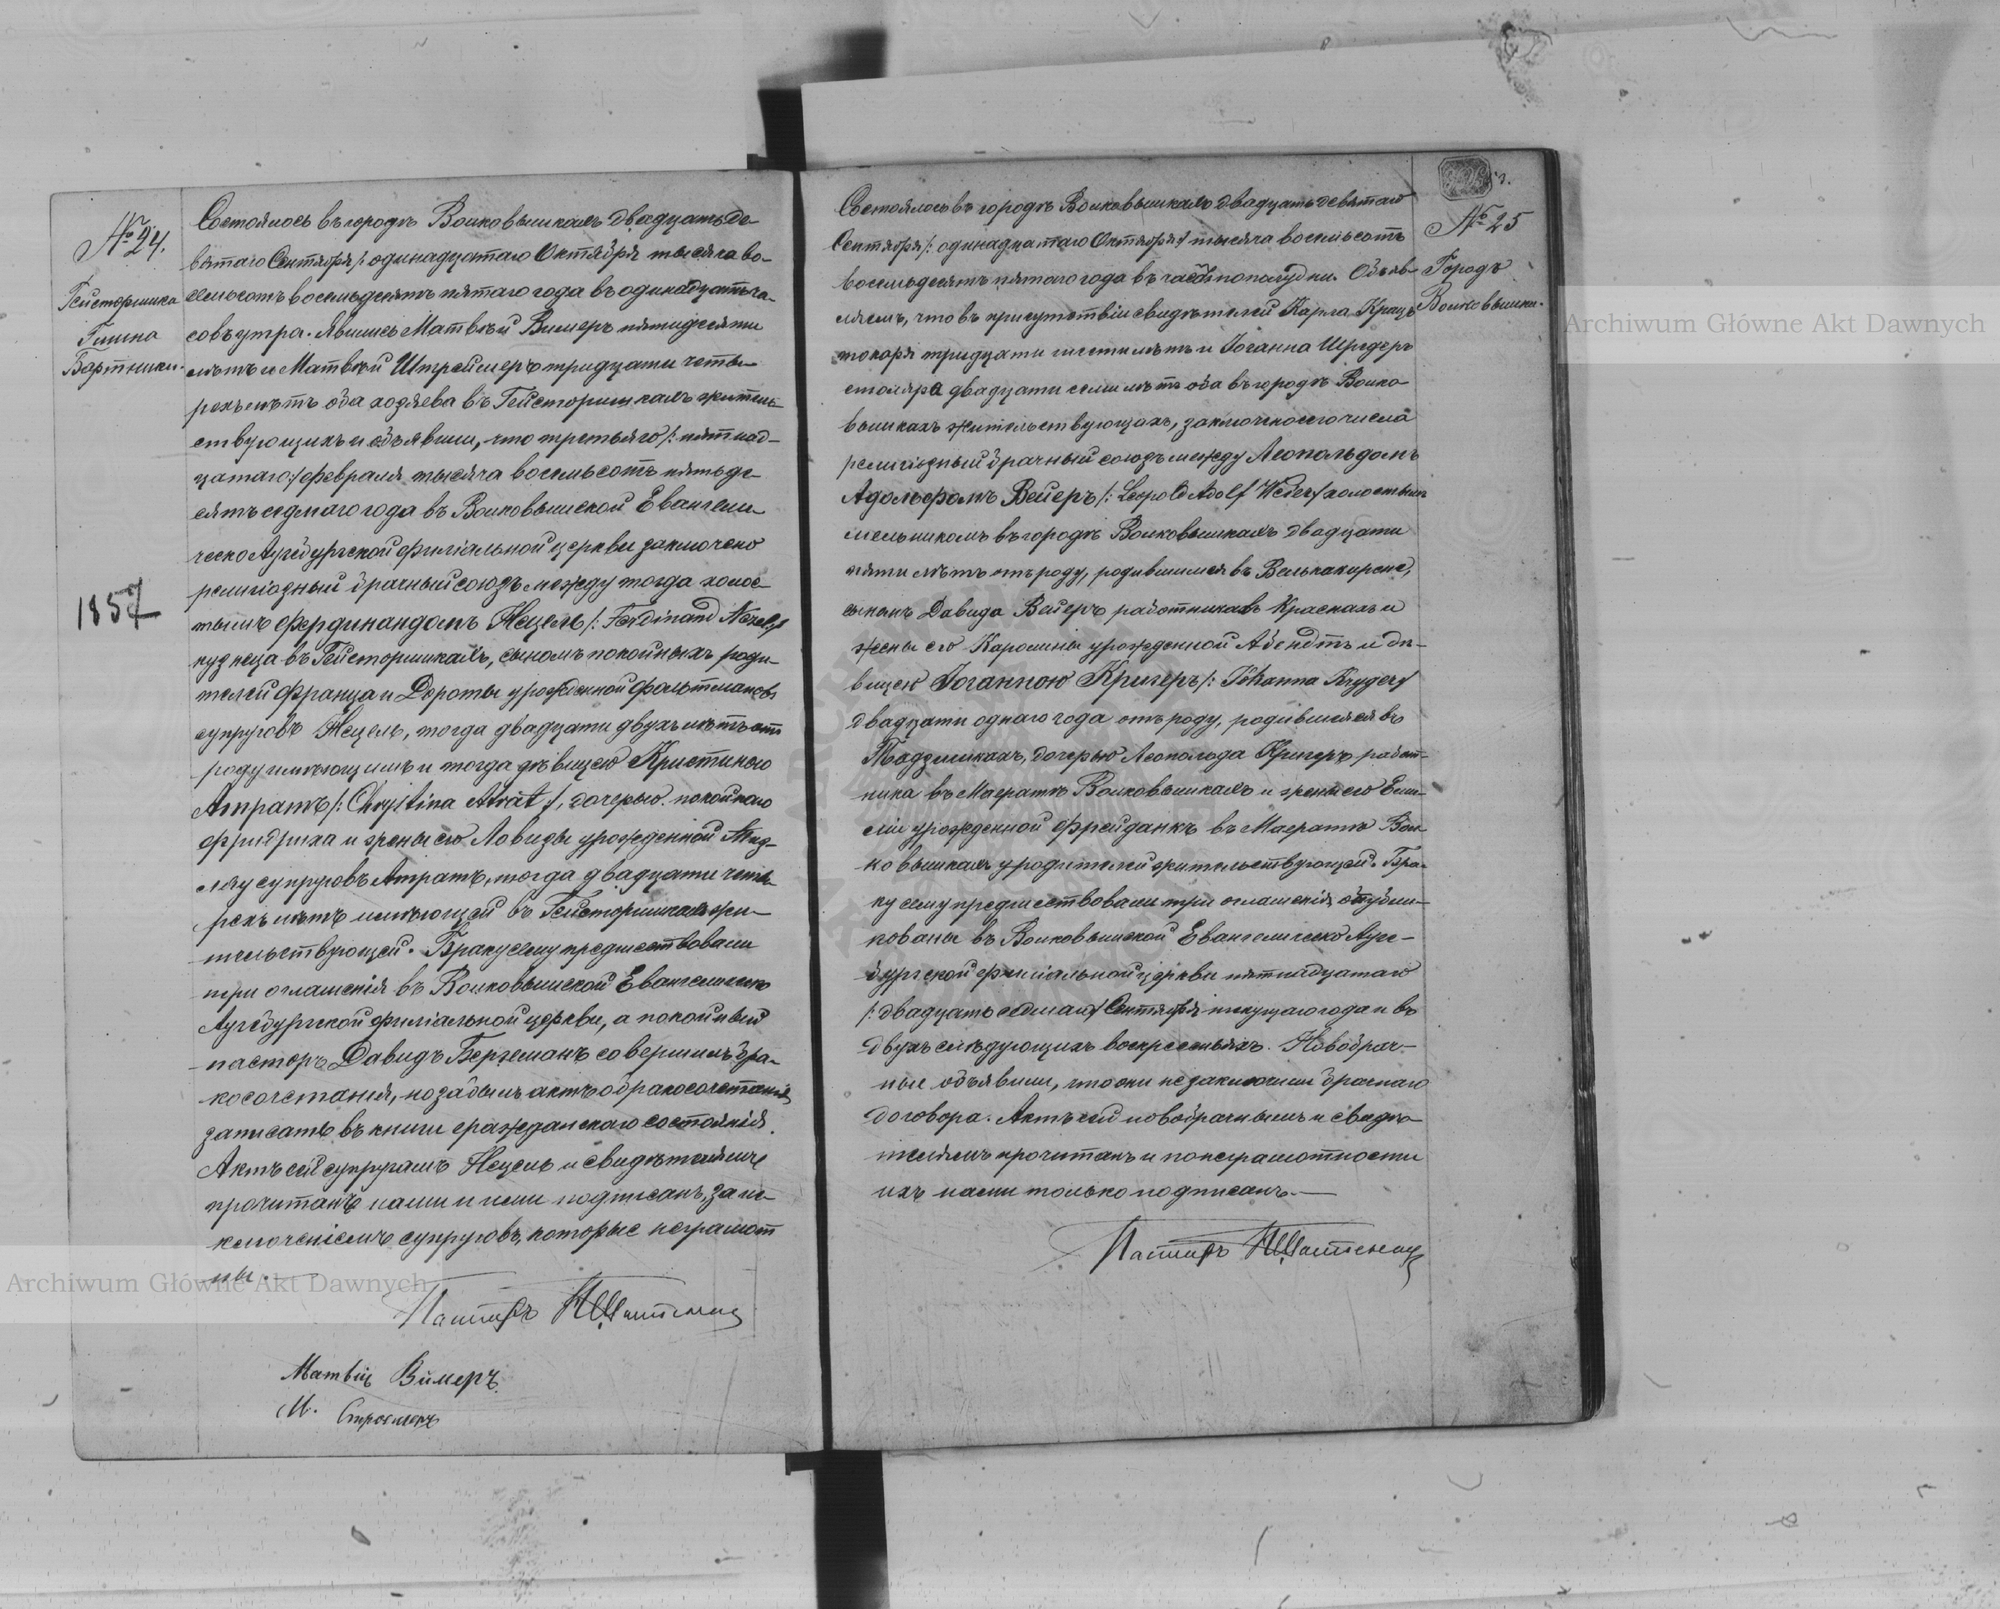 № 24.
Гейсторишки
Гмина
Бартники.
1857
Состоялось въ городѣ Волковышкахъ двадцать де-
вятаго Сентября /: одинадцатаго Октября тысяча во-
семьсотъ восемьдесятъ пятаго года въ одинадцать ча-
совъ утра. Явились Матвѣй Вимеръ пятидесяти
лѣтъ и Матвѣй Штреймеръ тридцати четы-
рехъ лѣтъ оба хозяева въ Гейсторишкахъ житель-
ствующихъ и объявили, что третьяго /: пятнад-
цатаго:/ февраля тысяча восемьсотъ пятьде-
сятъ седмаго года въ Волковышской Евангели-
ческо Аугсбургской филіальной церкви заключено
религіозный брачный союзъ между тогда холос-
тымъ Фердинандомъ Нецель /: Ferdinand Netzel:/
кузнеца въ Гейсторишкахъ, сыномъ покойныхъ роди-
телей Франца и Дороты урожденной Фольтмановъ
супруговъ Нецель, тогда двадцати двухъ лѣтъ отъ
роду имѣющимъ и тогда дѣвицею Кристиною
Атратъ /: Chrystina Atrat:/, дочерью покойнаго
Фридриха и жены его Ловизы урожденной
супруговъ Атратъ, тогда двадцати четы-
рехъ лѣтъ имѣющей въ Гейсторишкахъ жи-
тельствующей. Браку сему предшествовали
три оглашенія въ Волковышской Евангелическо
Аугсбургской филіальной церкви, а покойный
пасторъ Давидъ Бергеманъ совершилъ бра-
косочетанія, но забылъ актъ о бракосочетаніи
записать въ книги гражданскаго состоянія.
Актъ сей супругамъ Нецель и свидѣтелямъ
прочитанъ нами и ими подписанъ, за ис-
ключеніемъ супруговъ, которые неграмот
ны.
Пасторъ
Матвій Вимеръ
М. Стреймеръ
№ 25
Городъ
Волковышки.
Состоялось въ городѣ Волковышкахъ двадцать девятаго
Сентября /: одинадцатаго Октября:/ тысяча восемьсотъ
восемьдесятъ пятаго года въ часъ пополудни. Объяв-
ляемъ, что въ присутствіи свидѣтелей Карла Крацъ
токаря тридцати шести лѣтъ и Іоганна Шредеръ
столяра двадцати семи лѣтъ оба въ городѣ Волко-
вышкахъ жительствующихъ, заключено сего числа
религіозный брачный союзъ между Леопольдомъ
Адольфомъ Вейеръ /: Leopold Adolf Weier:/ холостымъ
мельникомъ въ городѣ Волковышкахъ двадцати
пяти лѣтъ отъ роду, родившимся въ
сыномъ Давида Вейеръ работника въ Краснахъ и
жены его Каролины урожденной Абендтъ и дѣ-
вицею Іоганною Кригеръ /: Johanna Kryger:/
двадцати одного года отъ роду, родившеяся въ
дочерью Леопольда Кригеръ работ-
ника въ Маератѣ Волковышкахъ и жены его Еми-
ліи урожденной Фрейданкъ въ Маератѣ Вол-
ковышкахъ у родителей жительствующей. Бра-
ку сему предшествовали три оглашенія опубли-
кованы въ Волковышской Евангелическо Аугс-
бургской филіальной церкви пятнадцатаго
/: двадцать седмаго:/ Сентября текущаго года и въ
двухъ слѣдующихъ воскресеньяхъ. Новобрач-
ные объявили, что они не заключили брачнаго
договора. Актъ сей новобрачнымъ и свидѣ-
телямъ прочитанъ и по неграмотности
ихъ нами только подписанъ.
Пасторъ
Archiwum Główne Akt Dawnych
Archiwum Główne Akt Dawnych